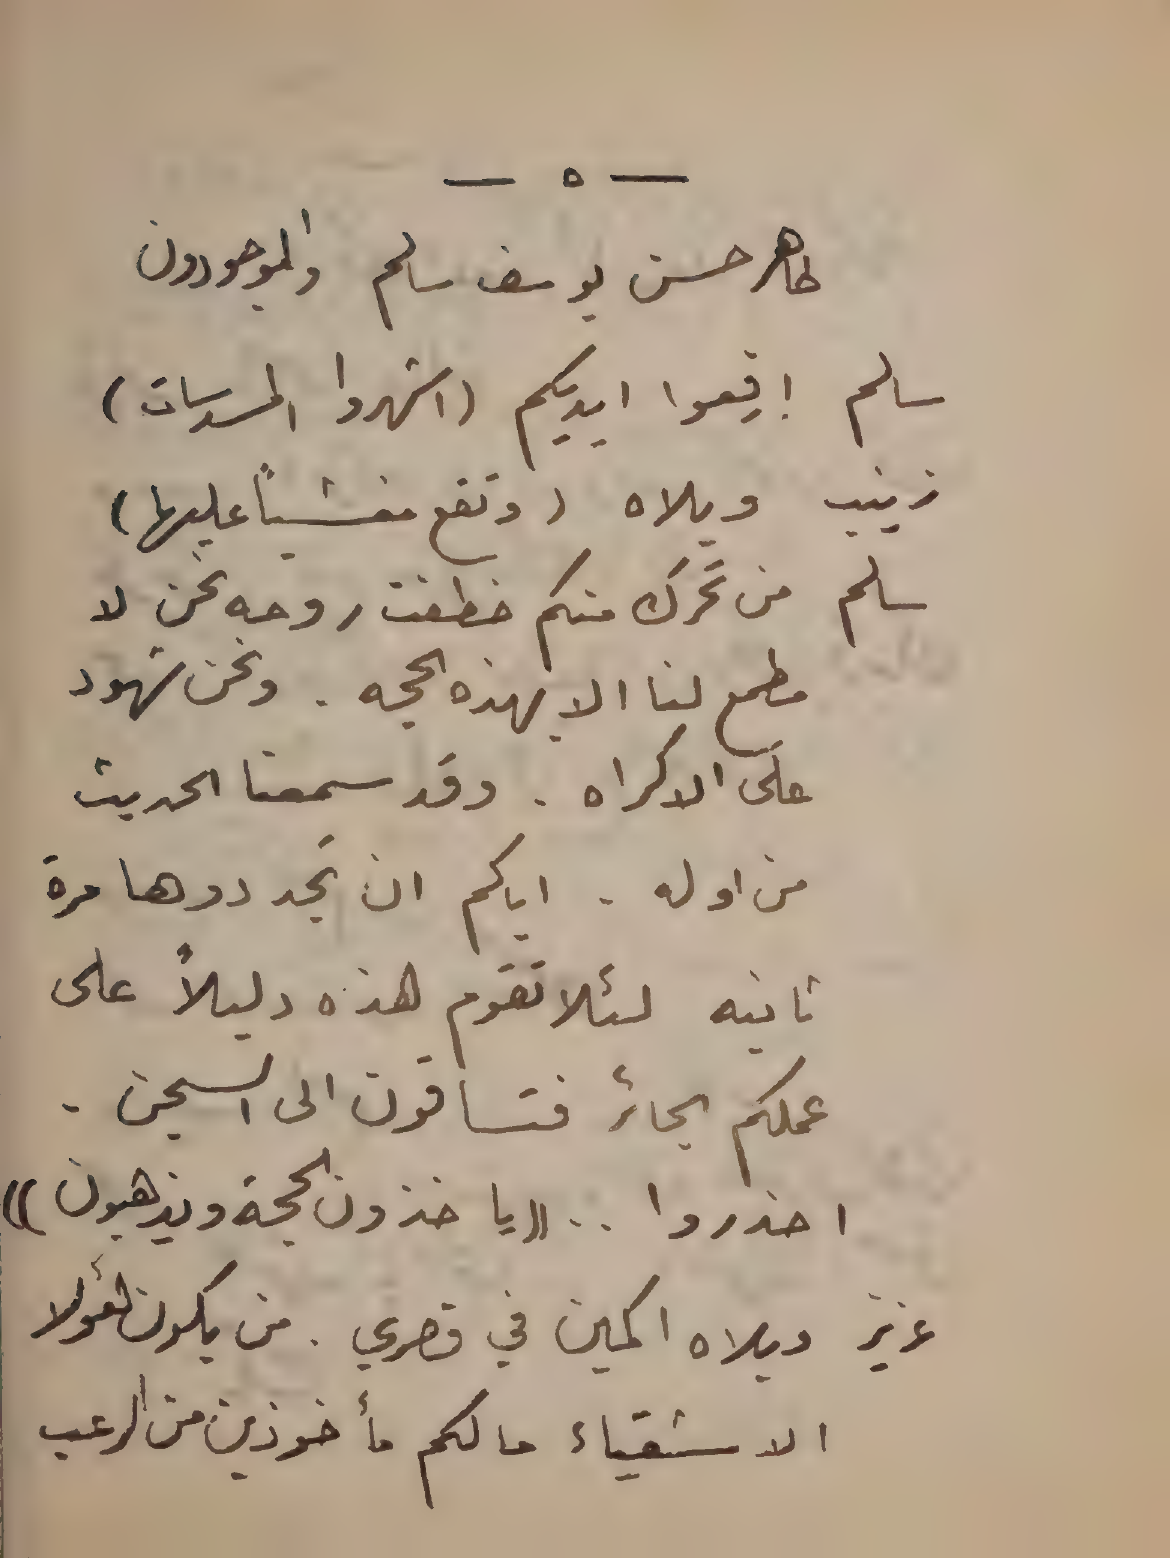 — ٥ —
طاهر حسن يوسف سالم والموجودون
سالم إرفعوا ايديكم (اشهروا المسدسات)
زينب ويلاه (وتقع مغشياً عليها)
سالم من تحرك منكم خطفت روحه نحن لا
مطمع لنا الا بهذه الحجه . ونحن شهود
على الاكراه . وقد سمعنا الحديث
من اوله . اياكم ان تجددوها مرة
ثانيه لئلا تقوم هذه دليلاً على
عملكم الجائر فتساقون الى السجن .
احذروا .. ((ياخذون الحجة ويذهبون))
عزيز ويلاه اكمين في قصري . من يكون هؤلا
الاشقياء مالكم مأخوذين من الرعب